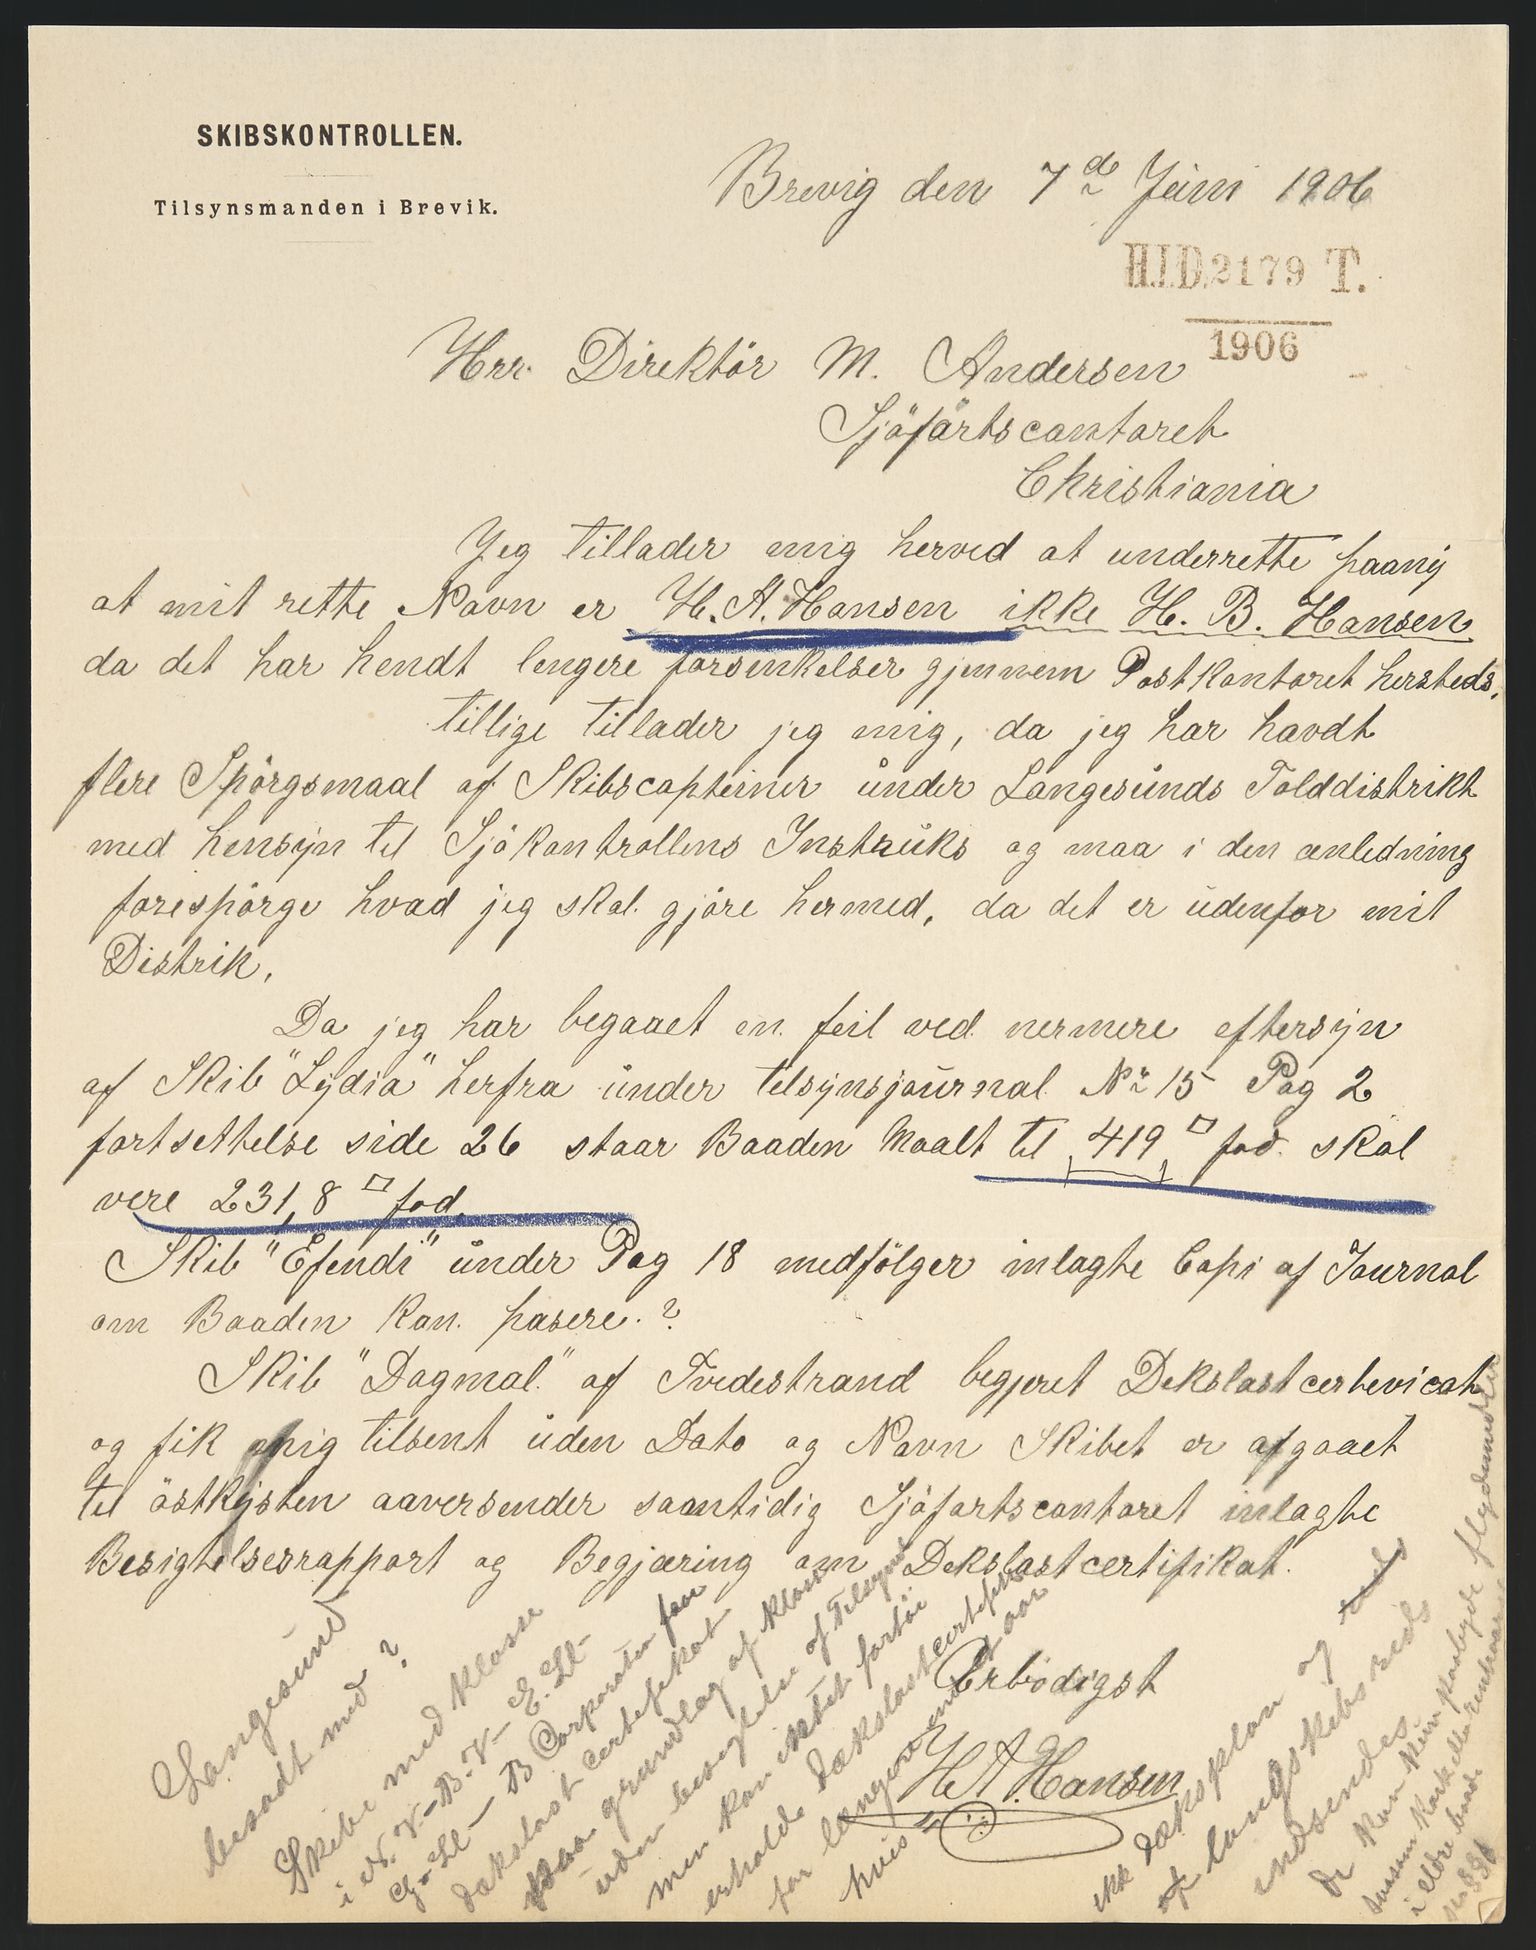 SKIBSKONTROLLEN.
Tilsynsmanden i Brevik.
Brevig den 7de Juni 1906
H.J.D. 2179 T.
1906
Hrr. Direktör M. Andersen
Sjöfartscontoret
Christiania
Jeg tillader mig herved at underrette paany
at mit rette Navn er H. A. Hansen ikke H. B. Hansen
da det har hendt lengere forsinkelser gjennem Postkontoret hersteds,
tillige tillader jeg mig, da jeg har havdt
flere Spörgsmaal af Skibscapteiner under Langesunds Tolddistrikt
med hensyn til Sjökontrollens Instruks og maa i den anledning
forespörge hvad jeg skal. gjöre hermed, da det er udenfor mit
Distrik.
Da jeg har begaaet en feil ved nermere eftersyn
af Skib "Lydia" herfra under tilsynsjournal Nr 15 Pag 2
fortsettelse side 26 staar Baaden Maalt til 419 □ fod. skal
vere 231,8 □ fod.
Skib "Efendi" under Pag 18 medfölger inlagte Copi af Journal
om Baaden kan. pasere.?
Skib "Dagmal." af Tvedestrand begjeret Dekslastcertevicat
og fik mig tilsent uden Dato og Navn Skibet er afgaaet
til östkysten aaversender samtidig Sjöfartscontoret inlagte
Besigtelsesrapport og Begjæring om Dekslastcertifikat.
Erbödigst
H A. Hansen
Langesund
besadt med ?
Skibe med klasse
i N. V – B. V – E. Ll –
G. Ll – B Corporation faar
dækslast certifikat
paa grundlag af klassen
uden besigtelse af Tilsynet
men kan intet fartöi
erholde dækslastcertifikat
for længere end et aar
hvis
ikk dæksplan og
af langskibs
indsendes.
De kan kun flydemidler
i eldre baade